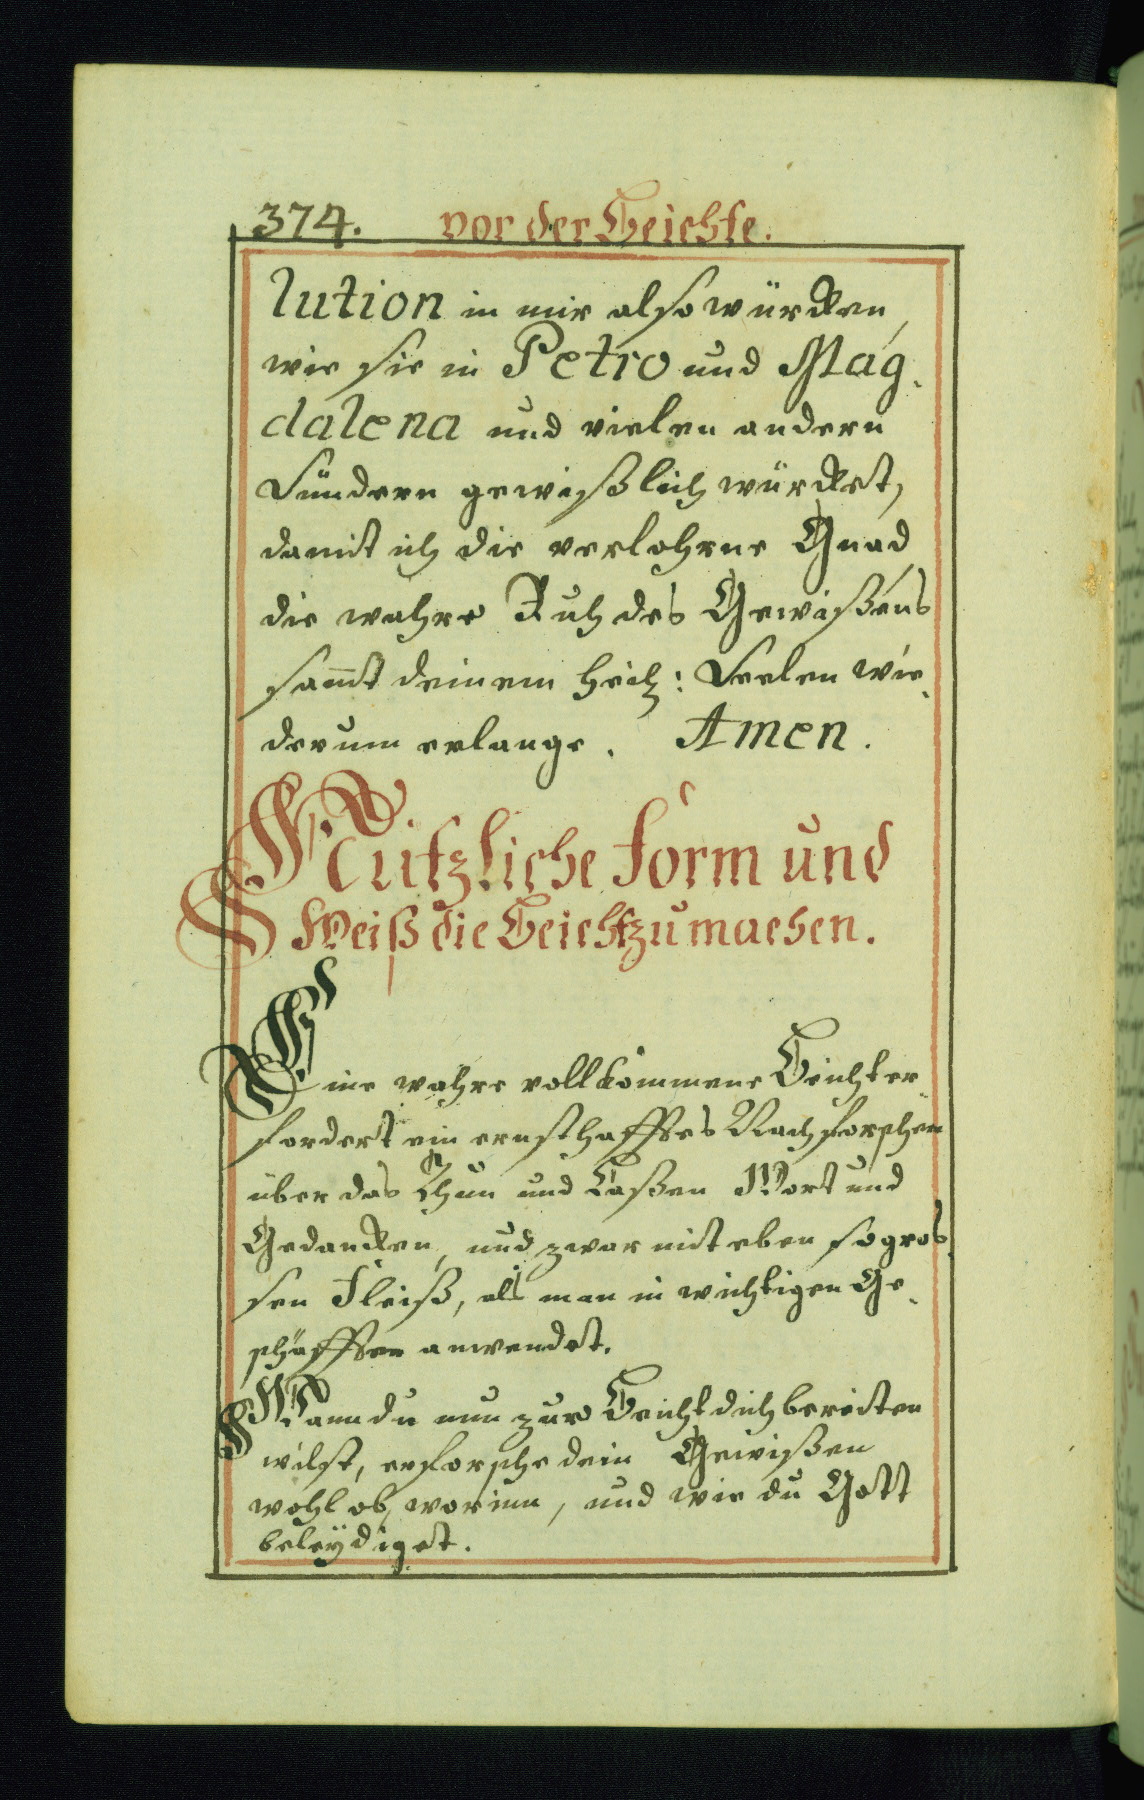 374. vor der Beichte.
lution in mir also würcken,
wie sie in Petro und Mag-
dalena und vielen andern
Sündern gewißlich würckest,
damit ich die verlohrne Gnad,
die wahre Ruh des Gewißens
samt deinem heil: Seelen wie-
derum erlange. Amen.
Nützliche Form und
Weiß die Beicht zu machen.
Eine wahre vollkommene Beicht er-
fordert ein ernsthafftes Nachforschen
über das Thun und Laßen Wort und
Gedancken, und zwar mit eben so gros-
sen Fleiß, als man in wichtigen Ge-
schäfften anwendet.
Wann du nun zur Beicht dich bereiten
wilst, erforsche dein Gewißen
wohl ob, worinn, und wie du Gott
beleydiget.